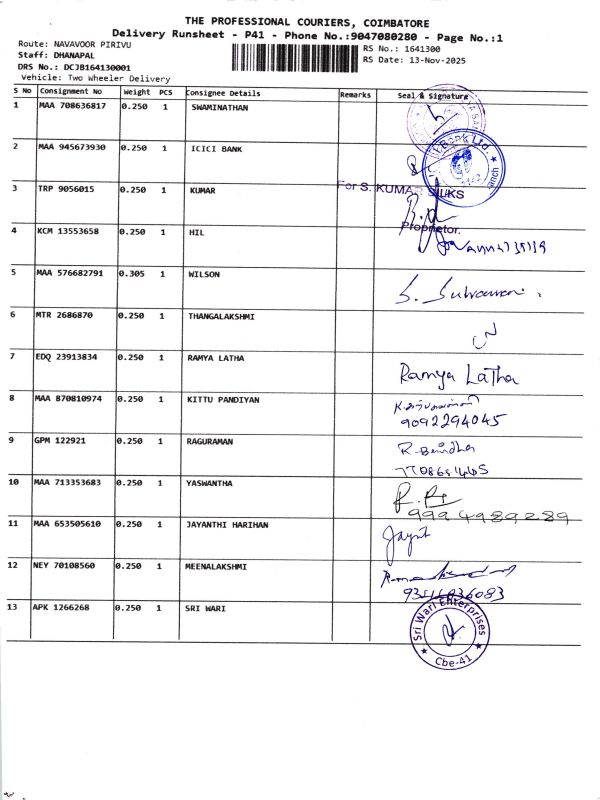 THE PROFESSIONAL COURIERS, COIMBATORE
Delivery Runsheet - P41 - Phone No.:9047080280 - Page No.:1
Route: NAVAVOOR PIRIVU
RS No.: 1641300
Staff: DHANAPAL
RS Date: 13-Nov-2025
DRS No.: DCJB164130001
Vehicle: Two Wheeler Delivery
S No Consignment No Weight PCS Consignee Details Remarks Seal & Signature
1 MAA 708636817 0.250 1 SWAMINATHAN
2 MAA 945673930 0.250 1 ICICI BANK
Bank Ltd.
3 TRP 9056015 0.250 1 KUMAR
For S. KUMAR SILKS
Proprietor.
4 KCM 13553658 0.250 1 HIL
5 MAA 576682791 0.305 1 WILSON
6 MTR 2686870 0.250 1 THANGALAKSHMI
7 EDQ 23913834 0.250 1 RAMYA LATHA
Ramya Latha
8 MAA 870810974 0.250 1 KITTU PANDIYAN
9092294045
9 GPM 122921 0.250 1 RAGURAMAN
10 MAA 713353683 0.250 1 YASWANTHA
9994989289
11 MAA 653505610 0.250 1 JAYANTHI HARIHAN
12 NEY 70108560 0.250 1 MEENALAKSHMI
13 APK 1266268 0.250 1 SRI WARI
Sri Wari Enterprises
Cbe-41